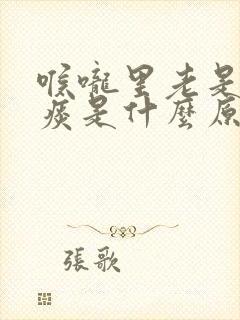 喉嚨里老是
痰是什麼原
張歌